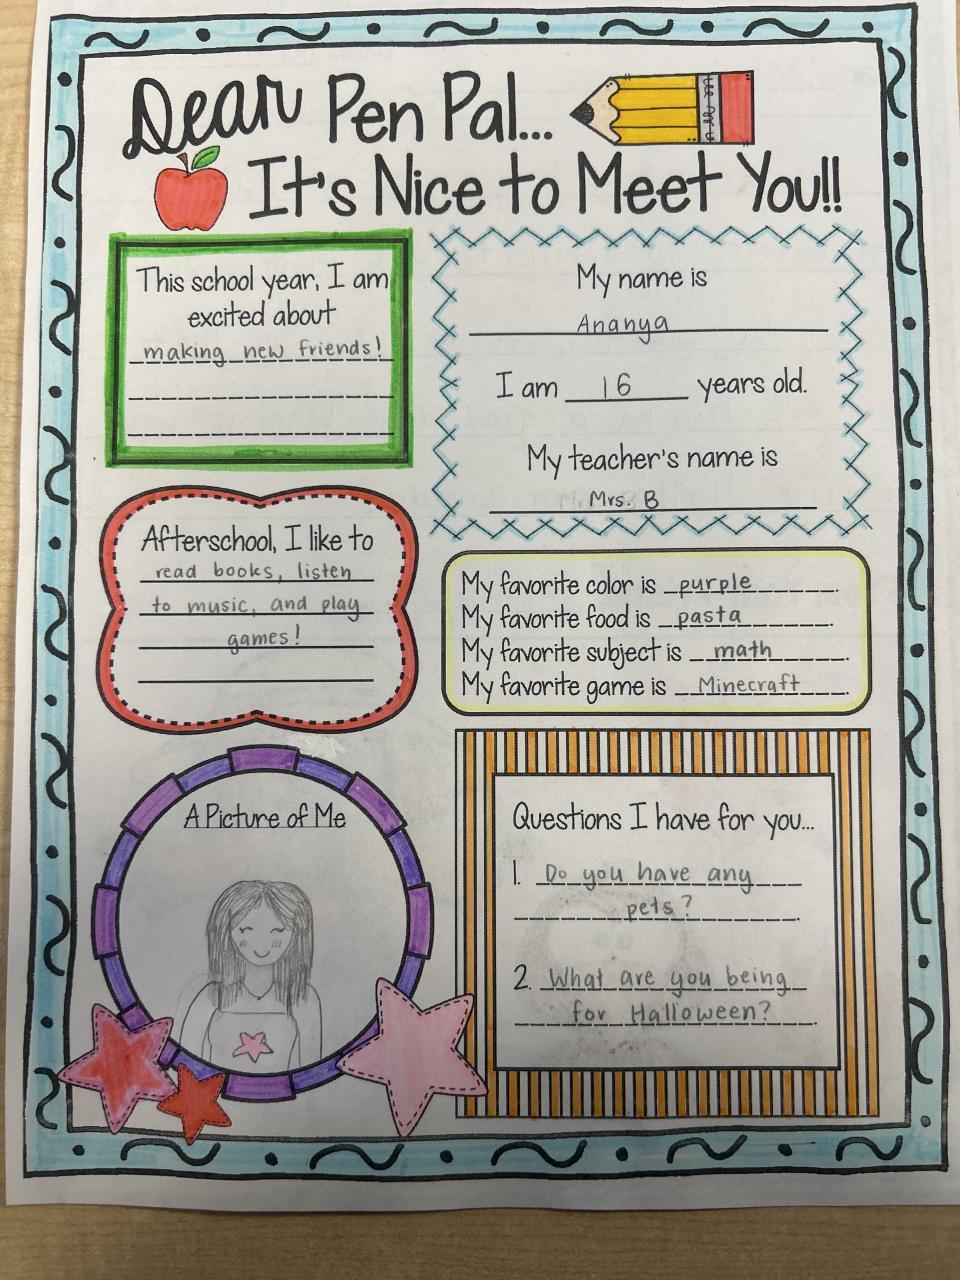 Dear Pen Pal...
It's Nice to Meet You!!
This school year, I am
excited about
making new friends!
My name is
Ananya
I am 16 years old.
My teacher's name is
Mrs. B
Afterschool, I like to
read books, listen
to music, and play
games!
My favorite color is purple.
My favorite food is pasta.
My favorite subject is math.
My favorite game is Minecraft.
A Picture of Me
Questions I have for you...
1. Do you have any
pets?
2. What are you being
for Halloween?